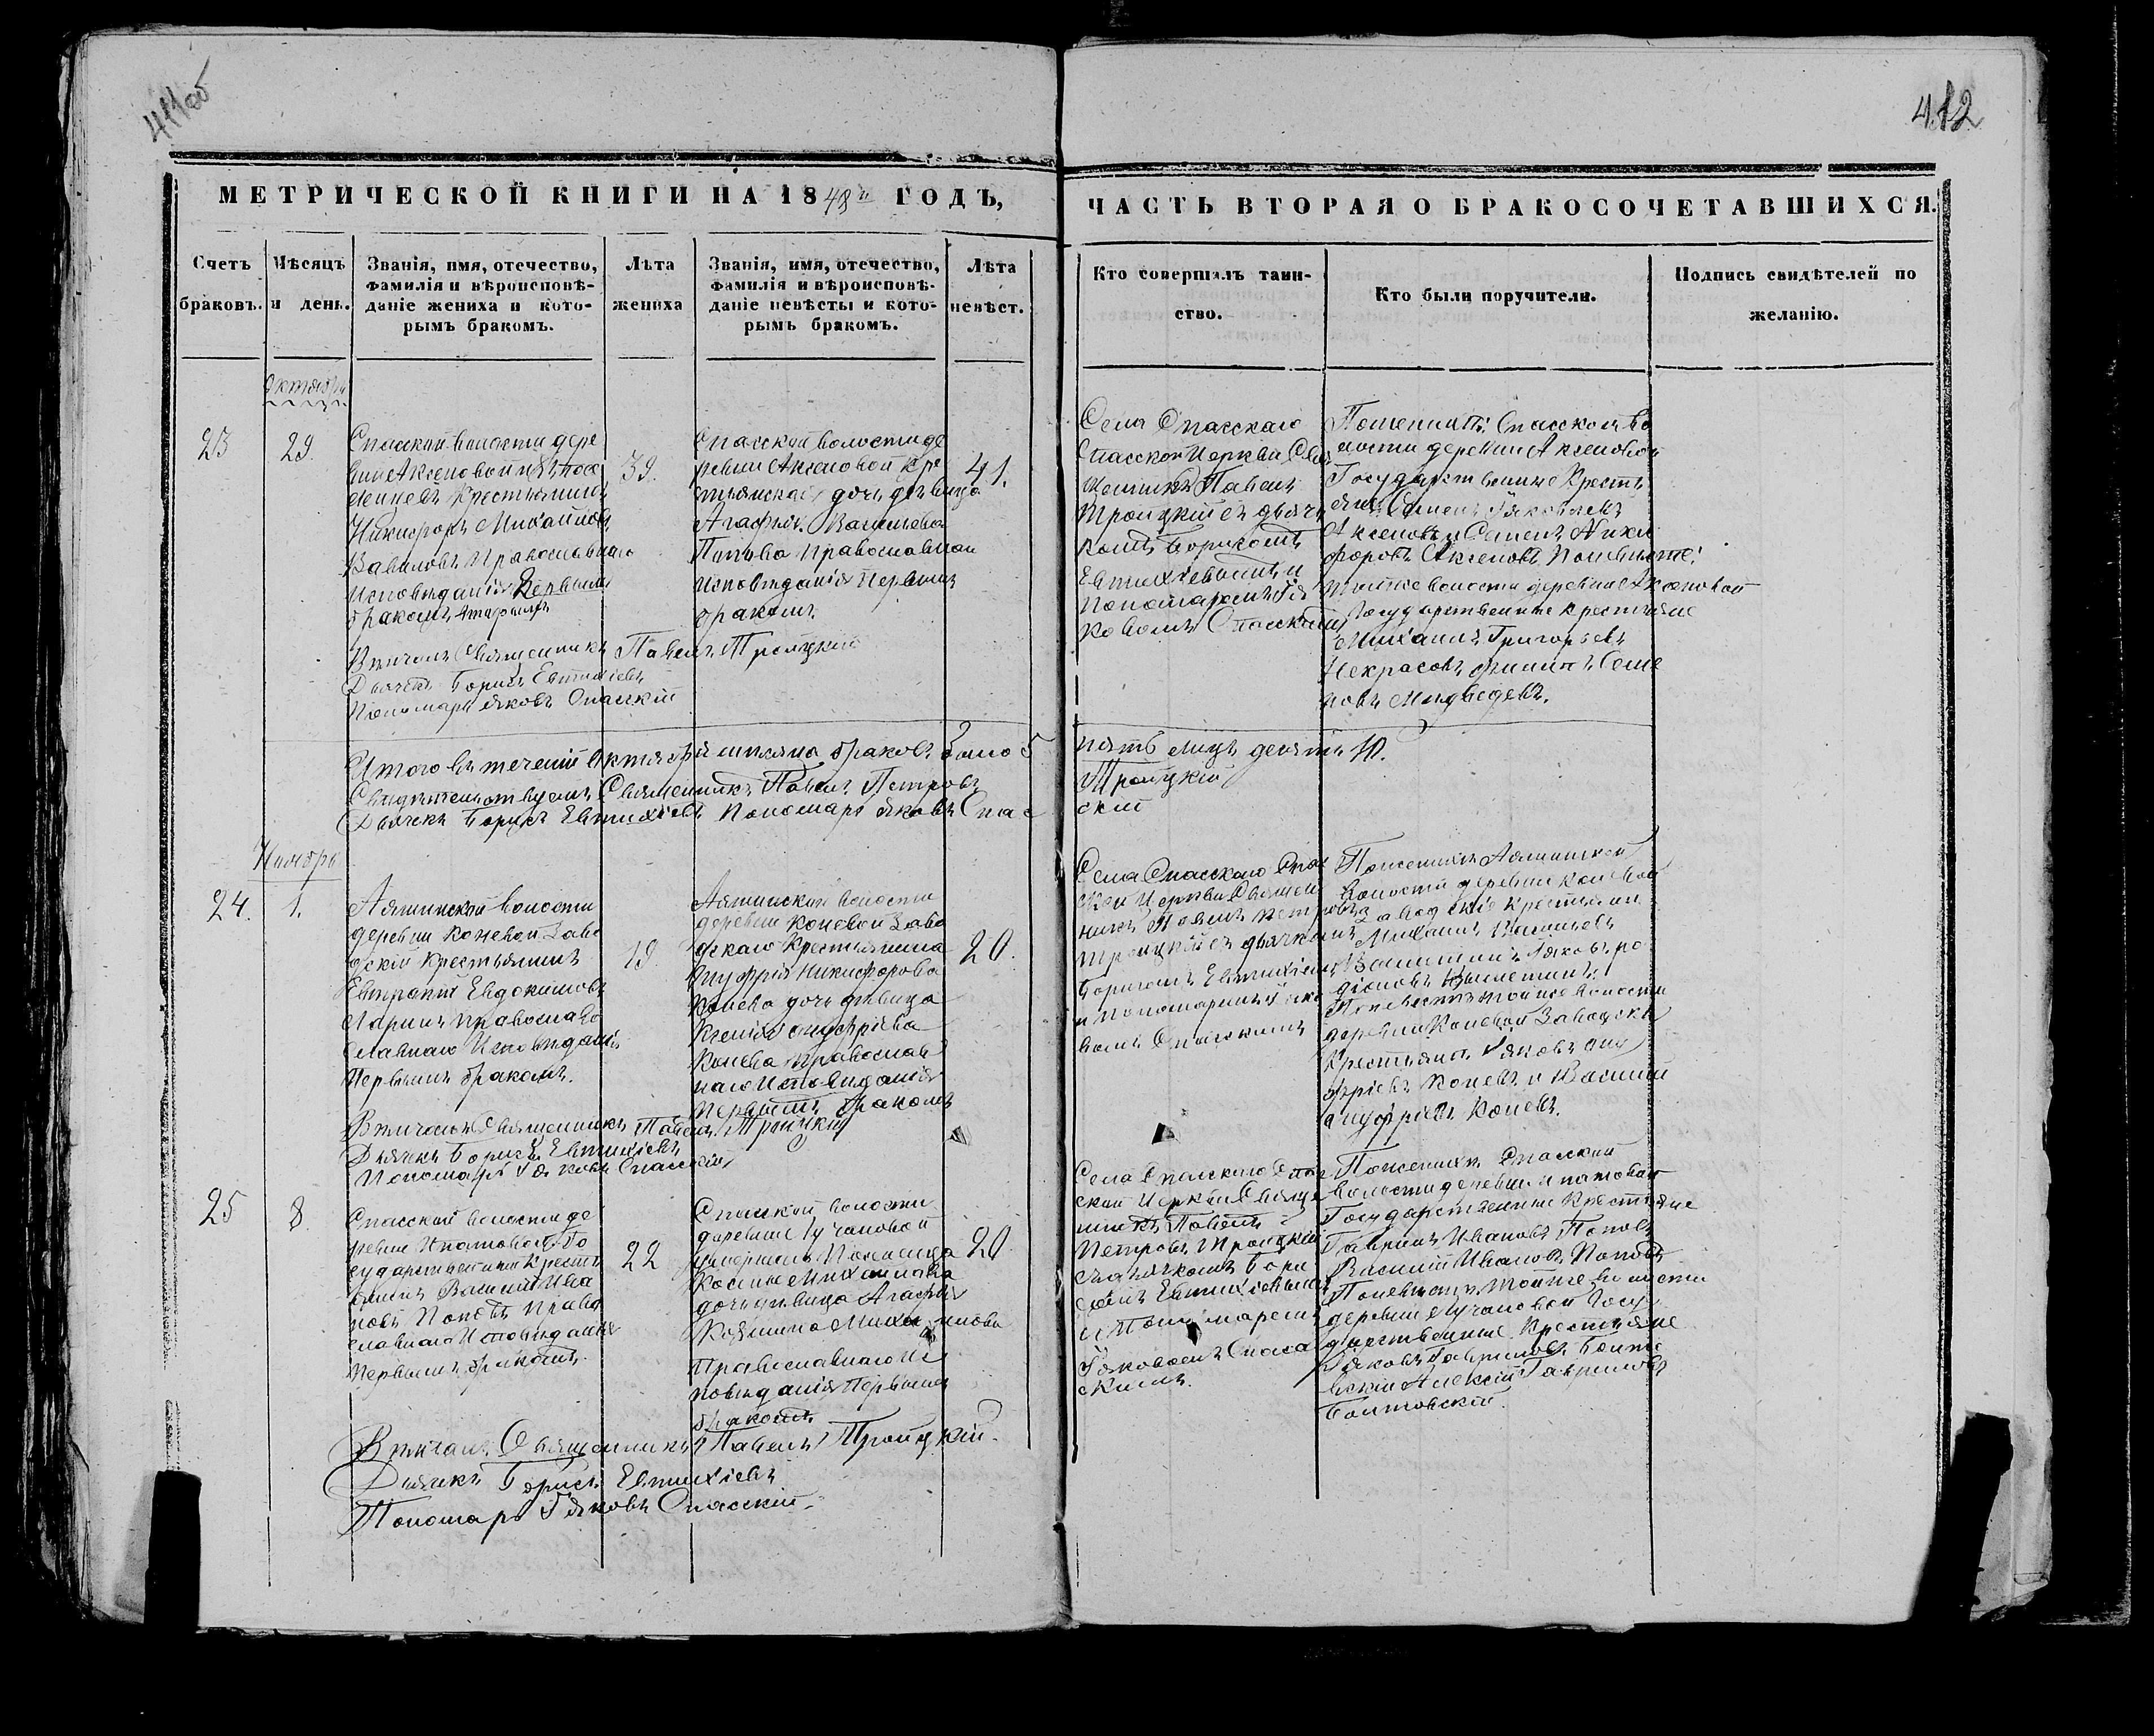 411 об
412
МЕТРИЧЕСКОЙ КНИГИ НА 1848 й ГОДЪ,
ЧАСТЬ ВТОРАЯ О БРАКОСОЧЕТАВШИХСЯ.
Счетъ
браковъ.
Мѣсяцъ
и день.
Званія, имя, отечество,
фамилія и вѣроисповѣ-
даніе жениха и кото-
рымъ бракомъ.
Лѣта
жениха
Званія, имя, отечество,
фамилія и вѣроисповѣ-
даніе невѣсты и кото-
рымъ бракомъ.
Лѣта
невѣст.
Кто совершалъ таин-
ство.
Кто были поручители.
Подпись свидѣтелей по
желанію.
Октября
23
29.
Спасской волости дере
вни Аксеновой изъ посе
ленцевъ Крестьянинъ
Никифоръ Михайловъ
Вавиловъ Православнаго
исповѣданія Первымъ
бракомъ
39.
Спасской волости де
ревни Аксеновой Кре
стьянская дочь девица
Агафья Васильева
Попова Православнаго
исповѣданія Первымъ
бракомъ.
41.
Села Спасскаго
Спасской Церкви Свя
щенникъ Павелъ
Троицкій съ дьяч
комъ Борисомъ
Евтихіевымъ и
пономаремъ Iя
ковомъ Спасскимъ
По женихѣ: Спасской во
лости деревни Аксеновой
Государственные Кресть
яне Семенъ Яковлевъ
Аксеновъ и Семенъ Ники
форовъ Аксеновъ По невѣсте:
той же волости деревни Аксеновой
Государственные крестьяне
Михаилъ Григорьевъ
Некрасовъ Филипъ Семе
новъ Медведевъ.
Вѣнчалъ Священникъ Павелъ Троицкій
Дьячекъ Борисъ Евтихіевъ
Пономарь Яковъ Спасскій
Итого въ теченіи Октября месяца браковъ было 5
пять лицъ десять 10.
Свидетельствуемъ Священникъ Павелъ Петровъ
Троицкій
Дьячекъ Борисъ Евтихіевъ Пономарь Яковъ Спас
скій
Ноябрь
24.
1.
Аяшинской волости
деревни Коневой Заво
дскій крестьянинъ
Евтропій Евдокимовъ
Ларинъ Православо
славнаго Исповѣданія
Первымъ бракомъ.
19.
Аяшинской волости
деревни Коневой Заво
дскаго Крестьянина
Онуфрія Никифорова
Конева дочь девица
Ксенія Онуфріева
Конева Православ
наго Исповѣданія
Первымъ бракомъ
20.
Села Спасскаго Спас
ской Церкви Священ
никъ Павелъ Петровъ
Троицкій съ дьячкомъ
Борисомъ Евтихіевымъ
и пономаремъ Iяко
вомъ Спасскимъ
По женихѣ Аяшинской
волости деревни Коневой
Заводскіе Крестьяне
Михаилъ Васильевъ
Яковъ Ро
діоновъ
По невестѣ той же волости
деревни Коневой Заводскіе
Крестьяне Iяковъ Ону
фріевъ Коневъ и Василій
Онуфріевъ Коневъ.
Вѣнчалъ Священникъ Павелъ Троицкій
Дьячекъ Борисъ Евтихіевъ
Пономарь Iяковъ Спасскій
25
8
Спасской волости де
ревни Ипатовой Го
сударственный Кресть
янинъ Василій Ива
новъ Поповъ Право
славнаго Исповѣданія
Первымъ бракомъ.
22
Спасской волости
деревни Лучановой
Козмы Михайлова
дочь девица Агафья
Козмина Михайлова
Православнаго Ис
повѣданія Первымъ
бракомъ
20.
Села Спасскаго Спас
ской Церкви Священ
никъ Павелъ
Петровъ Троицкій
съ дьячкомъ Бори
сомъ Евтихіевымъ
и Пономаремъ
Iяковомъ Спасс
кимъ.
По женихѣ Спасской
волости деревни Ипатовой
Государственные Крестьяне
Гаврилъ Ивановъ Поповъ
Василій Ивановъ Поповъ
По невестѣ той же волости
деревни Лучановой Госу
дарственные Крестьяне
Iяковъ Гавриловъ Болто
вскій Алексѣй Гавриловъ
Болтовскій.
Вѣнчалъ Священникъ Павелъ Троицкій.
Дьячекъ Борисъ Евтихіевъ
Пономарь Iяковъ Спасскій.